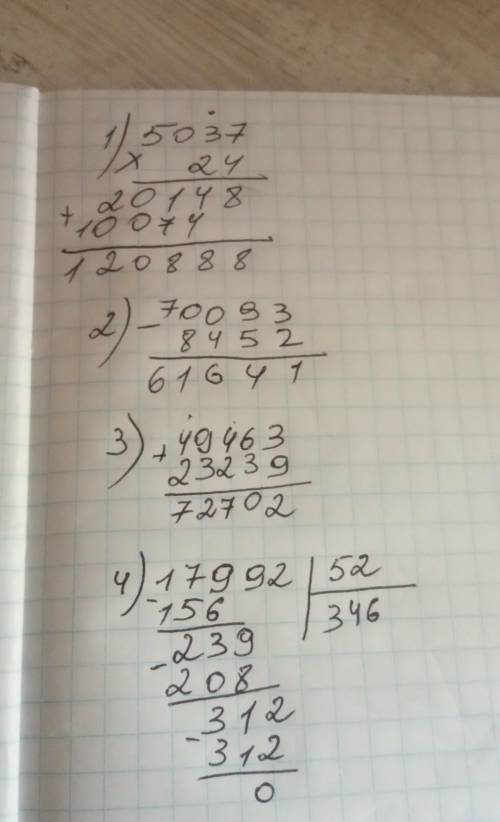 1) 5037
× 24
20148
+ 10074
120888
2) - 70093
8452
61641
3) + 49463
23239
72702
4) - 17992 | 52
156 | 346
- 239
208
- 312
312
0